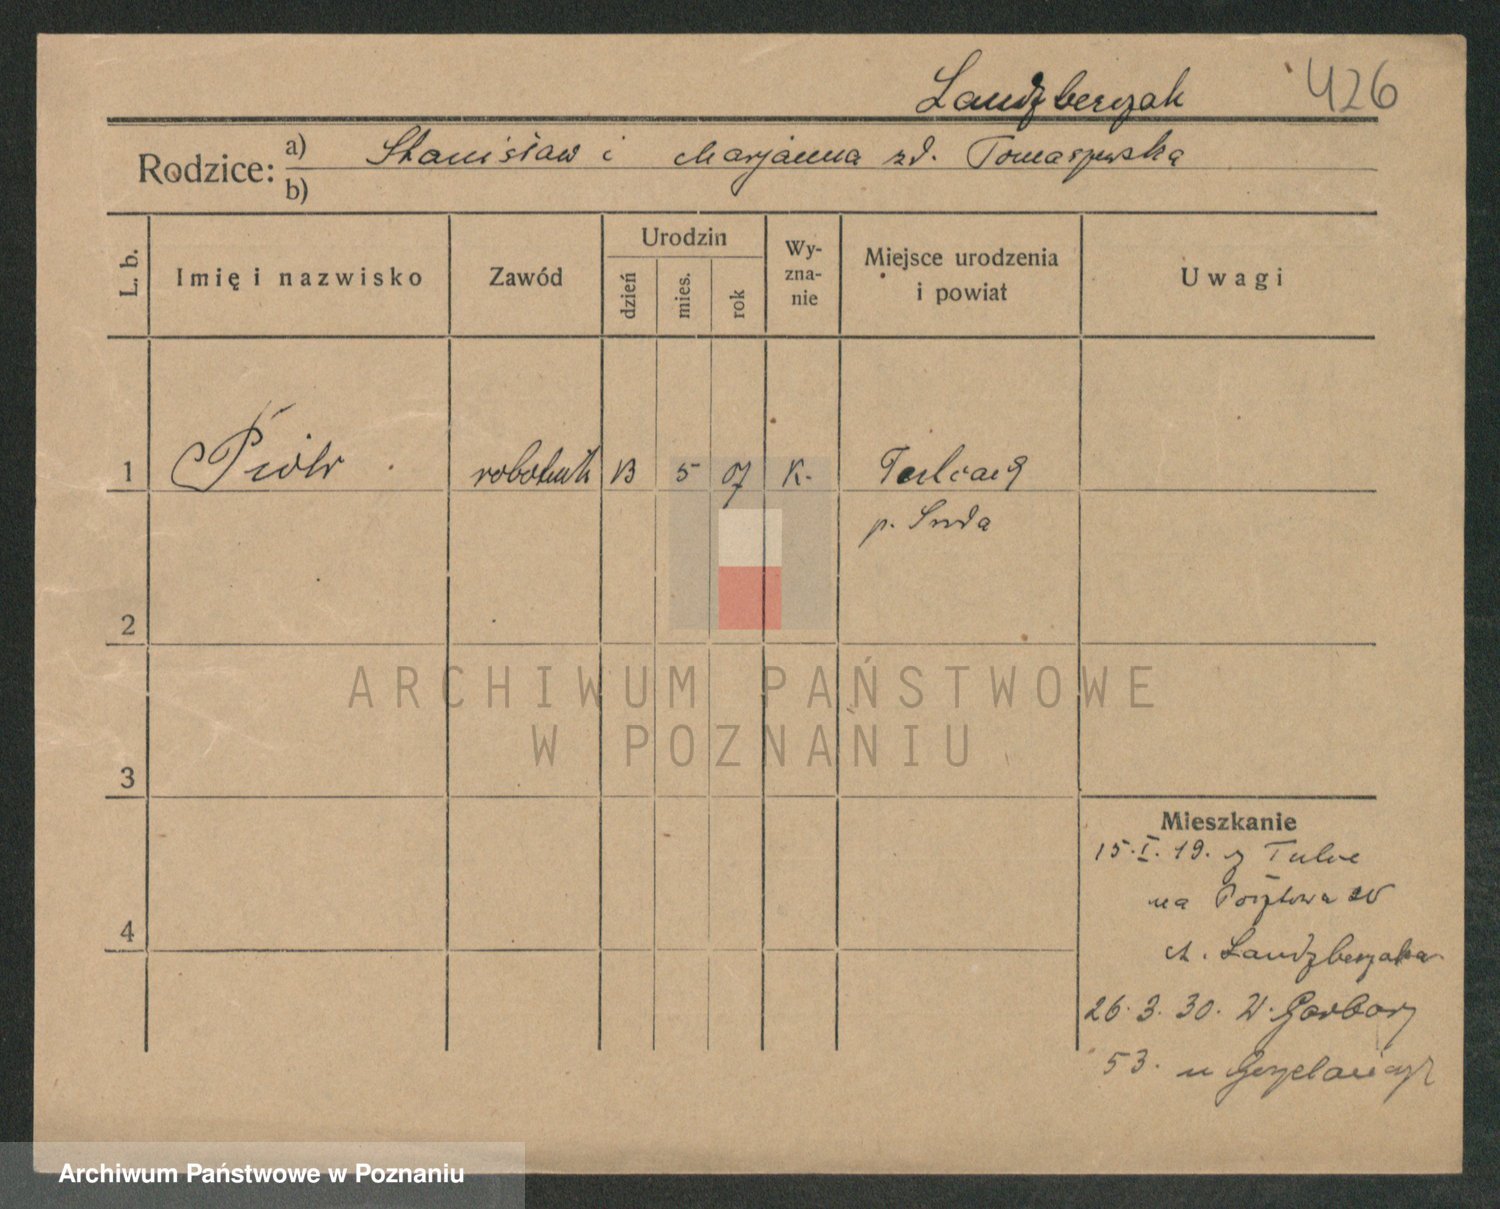 Landzberczak 426
Rodzice: a) Stanisław i Marjanna zd. Tomaszewska
b)
L. b. Imię i nazwisko Zawód Urodzin dzień mies. rok Wy-zna-nie Miejsce urodzenia i powiat Uwagi
1 Piotr robotnik 13 5 07 K.
p. Środa
2
ARCHIWUM PAŃSTWOWE
W POZNANIU
3
Mieszkanie
15. I. 19. z Tulce
na
4
Landzberczaka
26. 3. 30. W. Garbary
53. u
Archiwum Państwowe w Poznaniu